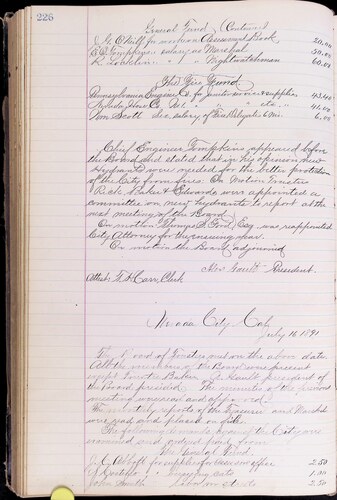 226
General Fund (Continued)
J. G. O'Neill for work on Assessment Book 20.00
salary as Marshal 50.00
R. " " Nightwatchman 60.00
The Fire Fund
Pennsylvania Engine Co. for supplies 43.40
Co. No. 1 " " etc., " 41.00
Tom Scott salary of Fire 6.00
Chief Engineer Tompkins appeared before
the Board and stated that in his opinion new
Hydrants were needed for the better protection
of the City from fire. On motion Trustees
Rede, Baker & Edwards were appointed a
committee on new hydrants to report at the
next meeting of the Board.
On motion Thomas S. Ford, Esq. was reappointed
City Attorney for the ensuing year.
On motion the Board adjourned
Geo. Gault President
Attest T. H. Carr, Clerk
Nevada City, Cal.
July 16, 1891
The Board of Trustees met on the above date.
All the members of the Board were present
except Trustee Baker. Geo. Gault president of
the Board presided. The minutes of the previous
meeting were read and approved.
The monthly reports of the Treasurer and Marshal
were read and placed on file.
The following demands against the City were
examined and ordered paid from
The General Fund
J. C. Abbott for supplies for Assessors office 2.50
J. acts 1.00
John Smith Labor on streets 2.50